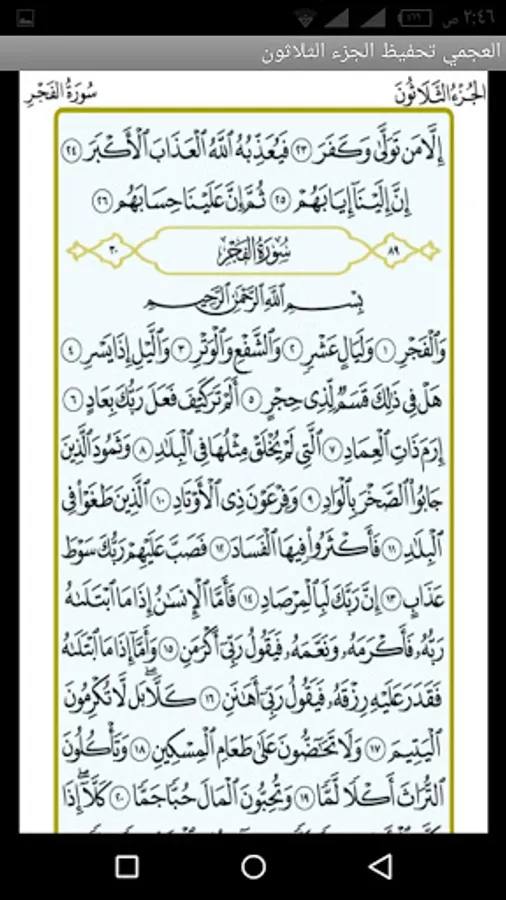 ٢:٤٦ ص
العجمي تحفيظ الجزء الثلاثون
الجُزْءُ الثَّلَاثُونَ
سُورَةُ الفَجْرِ
إِلَّا مَن تَوَلَّىٰ وَكَفَرَ ٢٣ فَيُعَذِّبُهُ اللَّهُ الْعَذَابَ الْأَكْبَرَ ٢٤
إِنَّ إِلَيْنَا إِيَابَهُمْ ٢٥ ثُمَّ إِنَّ عَلَيْنَا حِسَابَهُم ٢٦
٨٩ سُورَةُ الفَجْرِ ٣٠
بِسْمِ اللَّهِ الرَّحْمَٰنِ الرَّحِيمِ
وَالْفَجْرِ ١ وَلَيَالٍ عَشْرٍ ٢ وَالشَّفْعِ وَالْوَتْرِ ٣ وَاللَّيْلِ إِذَا يَسْرِ ٤
هَلْ فِي ذَٰلِكَ قَسَمٌ لِّذِي حِجْرٍ ٥ أَلَمْ تَرَ كَيْفَ فَعَلَ رَبُّكَ بِعَادٍ ٦
إِرَمَ ذَاتِ الْعِمَادِ ٧ الَّتِي لَمْ يُخْلَقْ مِثْلُهَا فِي الْبِلَادِ ٨ وَثَمُودَ الَّذِينَ
جَابُوا الصَّخْرَ بِالْوَادِ ٩ وَفِرْعَوْنَ ذِي الْأَوْتَادِ ١٠ الَّذِينَ طَغَوْا فِي
الْبِلَادِ ١١ فَأَكْثَرُوا فِيهَا الْفَسَادَ ١٢ فَصَبَّ عَلَيْهِمْ رَبُّكَ سَوْطَ
عَذَابٍ ١٣ إِنَّ رَبَّكَ لَبِالْمِرْصَادِ ١٤ فَأَمَّا الْإِنسَٰنُ إِذَا مَا ابْتَلَىٰهُ
رَبُّهُ فَأَكْرَمَهُ وَنَعَّمَهُ فَيَقُولُ رَبِّي أَكْرَمَنِ ١٥ وَأَمَّا إِذَا مَا ابْتَلَىٰهُ
فَقَدَرَ عَلَيْهِ رِزْقَهُ فَيَقُولُ رَبِّي أَهَٰنَنِ ١٦ كَلَّا بَل لَّا تُكْرِمُونَ
الْيَتِيمَ ١٧ وَلَا تَحَٰضُّونَ عَلَىٰ طَعَامِ الْمِسْكِينِ ١٨ وَتَأْكُلُونَ
التُّرَاثَ أَكْلًا لَّمًّا ١٩ وَتُحِبُّونَ الْمَالَ حُبًّا جَمًّا ٢٠ كَلَّا إِذَا